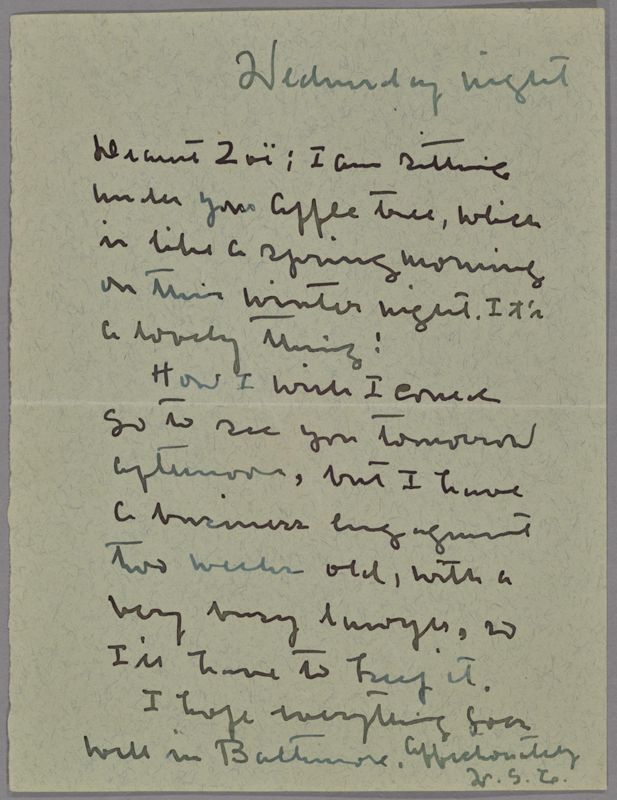 Wednesday night
Dearest Zoë; I am sitting
under your apple tree, which
is like a spring morning
on this winter night. It's
a lovely thing!
How I wish I could
go to see you tomorrow
afternoon, but I have
a business engagement
two weeks old, with a
very busy lawyer, so
I'll have to keep it.
I hope everything goes
well in Baltimore. Affectionately
W. S. C.